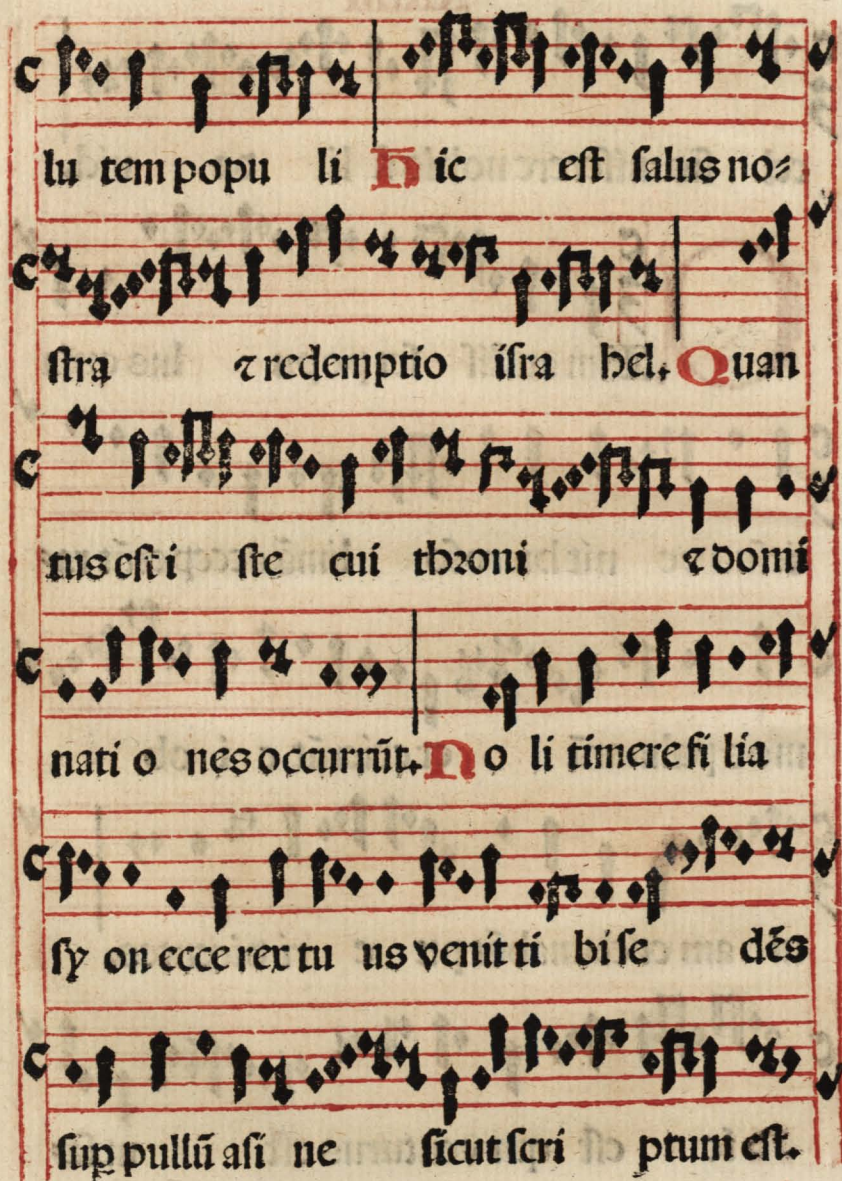 lu tem popu li Hic est salus no⸗
stra ⁊ redemptio isra hel. Quan
tus est i ste cui throni ⁊ domi
nati o nes occurrūt. No li timere fi lia
sy on ecce rex tu us venit ti bi se dēs
suꝑ pullū asi ne sicut scri ptum est.